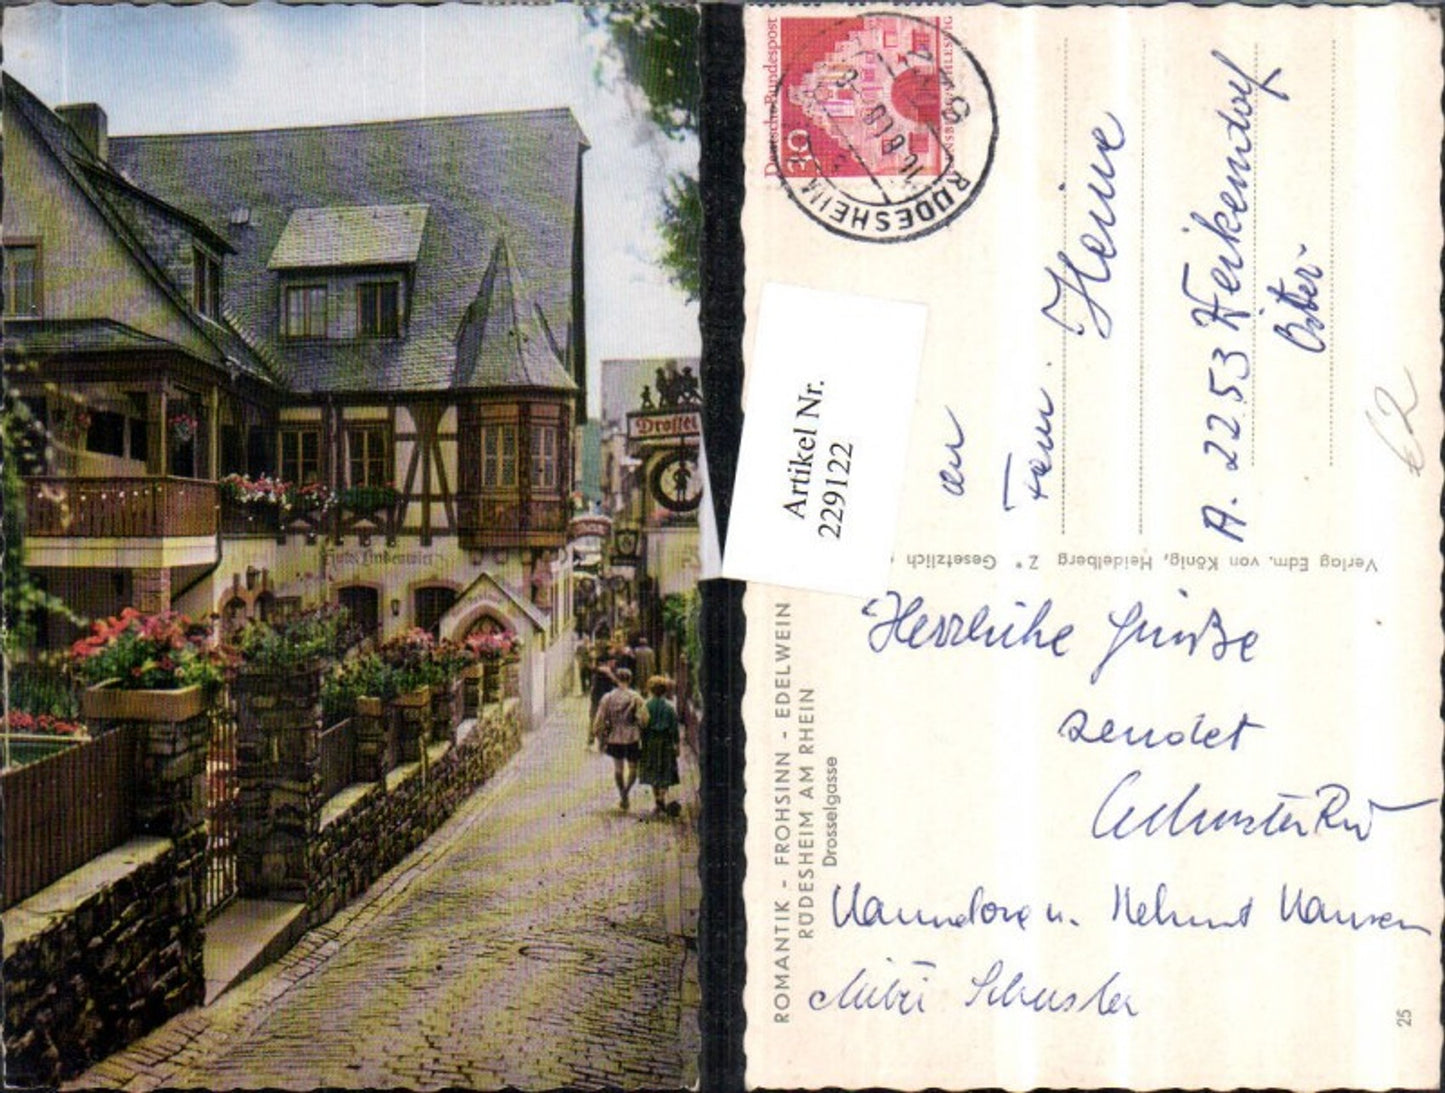 Drossel
Haus Lindenwirt
Deutsche Bundespost
30
RÜDESHEIM
Artikel Nr.
229122
an
Fam. Heine
A. 2253 Weikendorf
Öster-
€2
Verlag Edm. von König, Heidelberg Z* Gesetzlich
ROMANTIK - FROHSINN - EDELWEIN
RÜDESHEIM AM RHEIN
Drosselgasse
Herzliche Grüße
sendet
Hannelore u. Helmut Hansen
Schuster
25